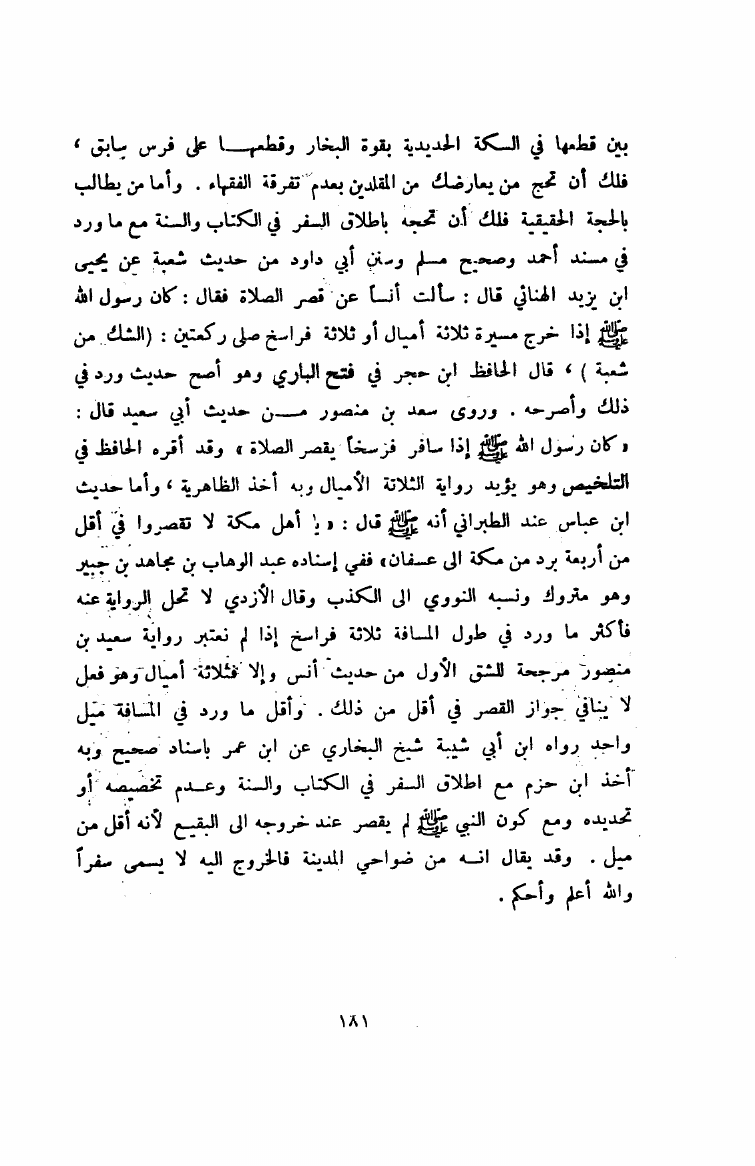 بين قطعها في السكة الحديدية بقوة البخار وقطعهــا على فرس سابق ،
فلك أن تحج من يعارضك من المقلدين بعدم تفرقة الفقهاء . وأما من يطالب
بالحجة الحقيقية فلك أن تحجه باطلاق السفر في الكتاب والسنة مع ما ورد
في مسند أحمد وصحيح مسلم وسنن أبي داود من حديث شعبة عن يحيى
ابن يزيد الهنائي قال : سألت أنساً عن قصر الصلاة فقال : كان رسول الله
ﷺ إذا خرج مسيرة ثلاثة أميال أو ثلاثة فراسخ صلى ركعتين : (الشك من
شعبة ) ، قال الحافظ ابن حجر في فتح الباري وهو أصح حديث ورد في
ذلك وأصرحه . وروى سعد بن منصور مــن حديث أبي سعيد قال :
« كان رسول الله ﷺ إذا سافر فرسخاً يقصر الصلاة » وقد أقره الحافظ في
التلخيص وهو يؤيد رواية الثلاثة الأميال وبه أخذ الظاهرية ، وأما حديث
ابن عباس عند الطبراني أنه ﷺ قال : « يا أهل مكة لا تقصروا في أقل
من أربعة برد من مكة الى عسفان» ففي إسناده عبد الوهاب بن مجاهد بن جبير
وهو متروك ونسبه النووي الى الكذب وقال الأزدي لا تحل الرواية عنه
فأكثر ما ورد في طول المسافة ثلاثة فراسخ إذا لم نعتبر رواية سعيد بن
منصور مرجحة للشق الأول من حديث أنس وإلا فثلاثة أميال وهو فعل
لا ينافي جواز القصر في أقل من ذلك . وأقل ما ورد في المسافة ميل
واحد رواه ابن أبي شيبة شيخ البخاري عن ابن عمر باسناد صحيح وبه
أخذ ابن حزم مع اطلاق السفر في الكتاب والسنة وعــدم تخصيصه أو
تحديده ومع كون النبي ﷺ لم يقصر عند خروجه الى البقيع لأنه أقل من
ميل . وقد يقال انــه من ضواحي المدينة فالخروج اليه لا يسمى سفراً
والله أعلم وأحكم .
١٨١